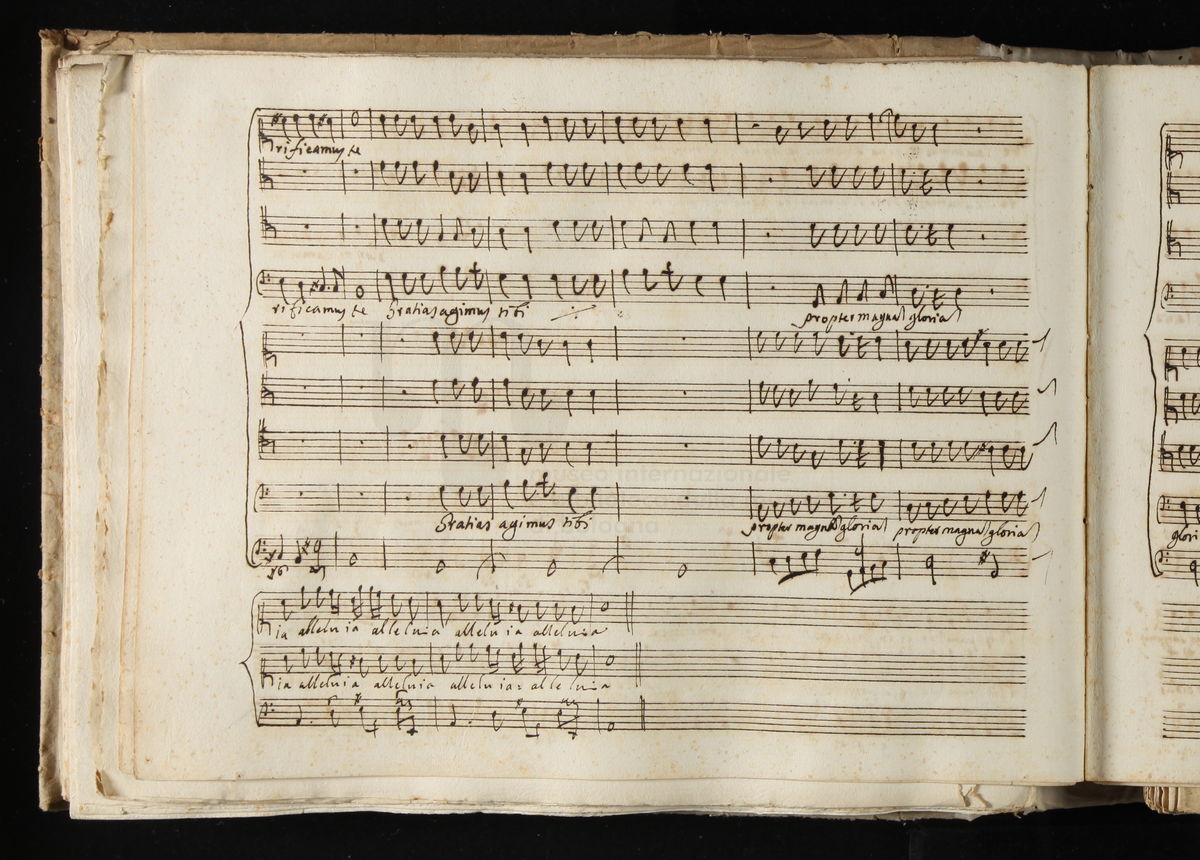 rificamus te
rificamus te Gratias agimus tibi propter magna gloria
Gratias agimus tibi propter magna gloria propter magna gloria
ia alleluia alleluia alleluia alleluia
ia alleluia alleluia alleluia alleluia
museo internazionale
bologna
glori